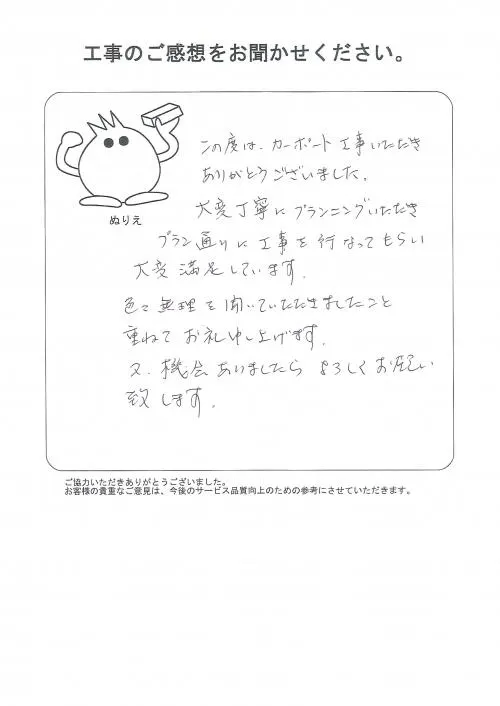 工事のご感想をお聞かせください。
この度は、カーポート工事いただき
ありがとうございました。
大変丁寧にプランニングいただき
プラン通りに工事を行なってもらい
大変満足しています。
色々無理を聞いていただきましたこと
重ねてお礼申し上げます。
又、機会ありましたらよろしくお願い
致します。
ぬりえ
ご協力いただきありがとうございました。
お客様の貴重なご意見は、今後のサービス品質向上のための参考にさせていただきます。